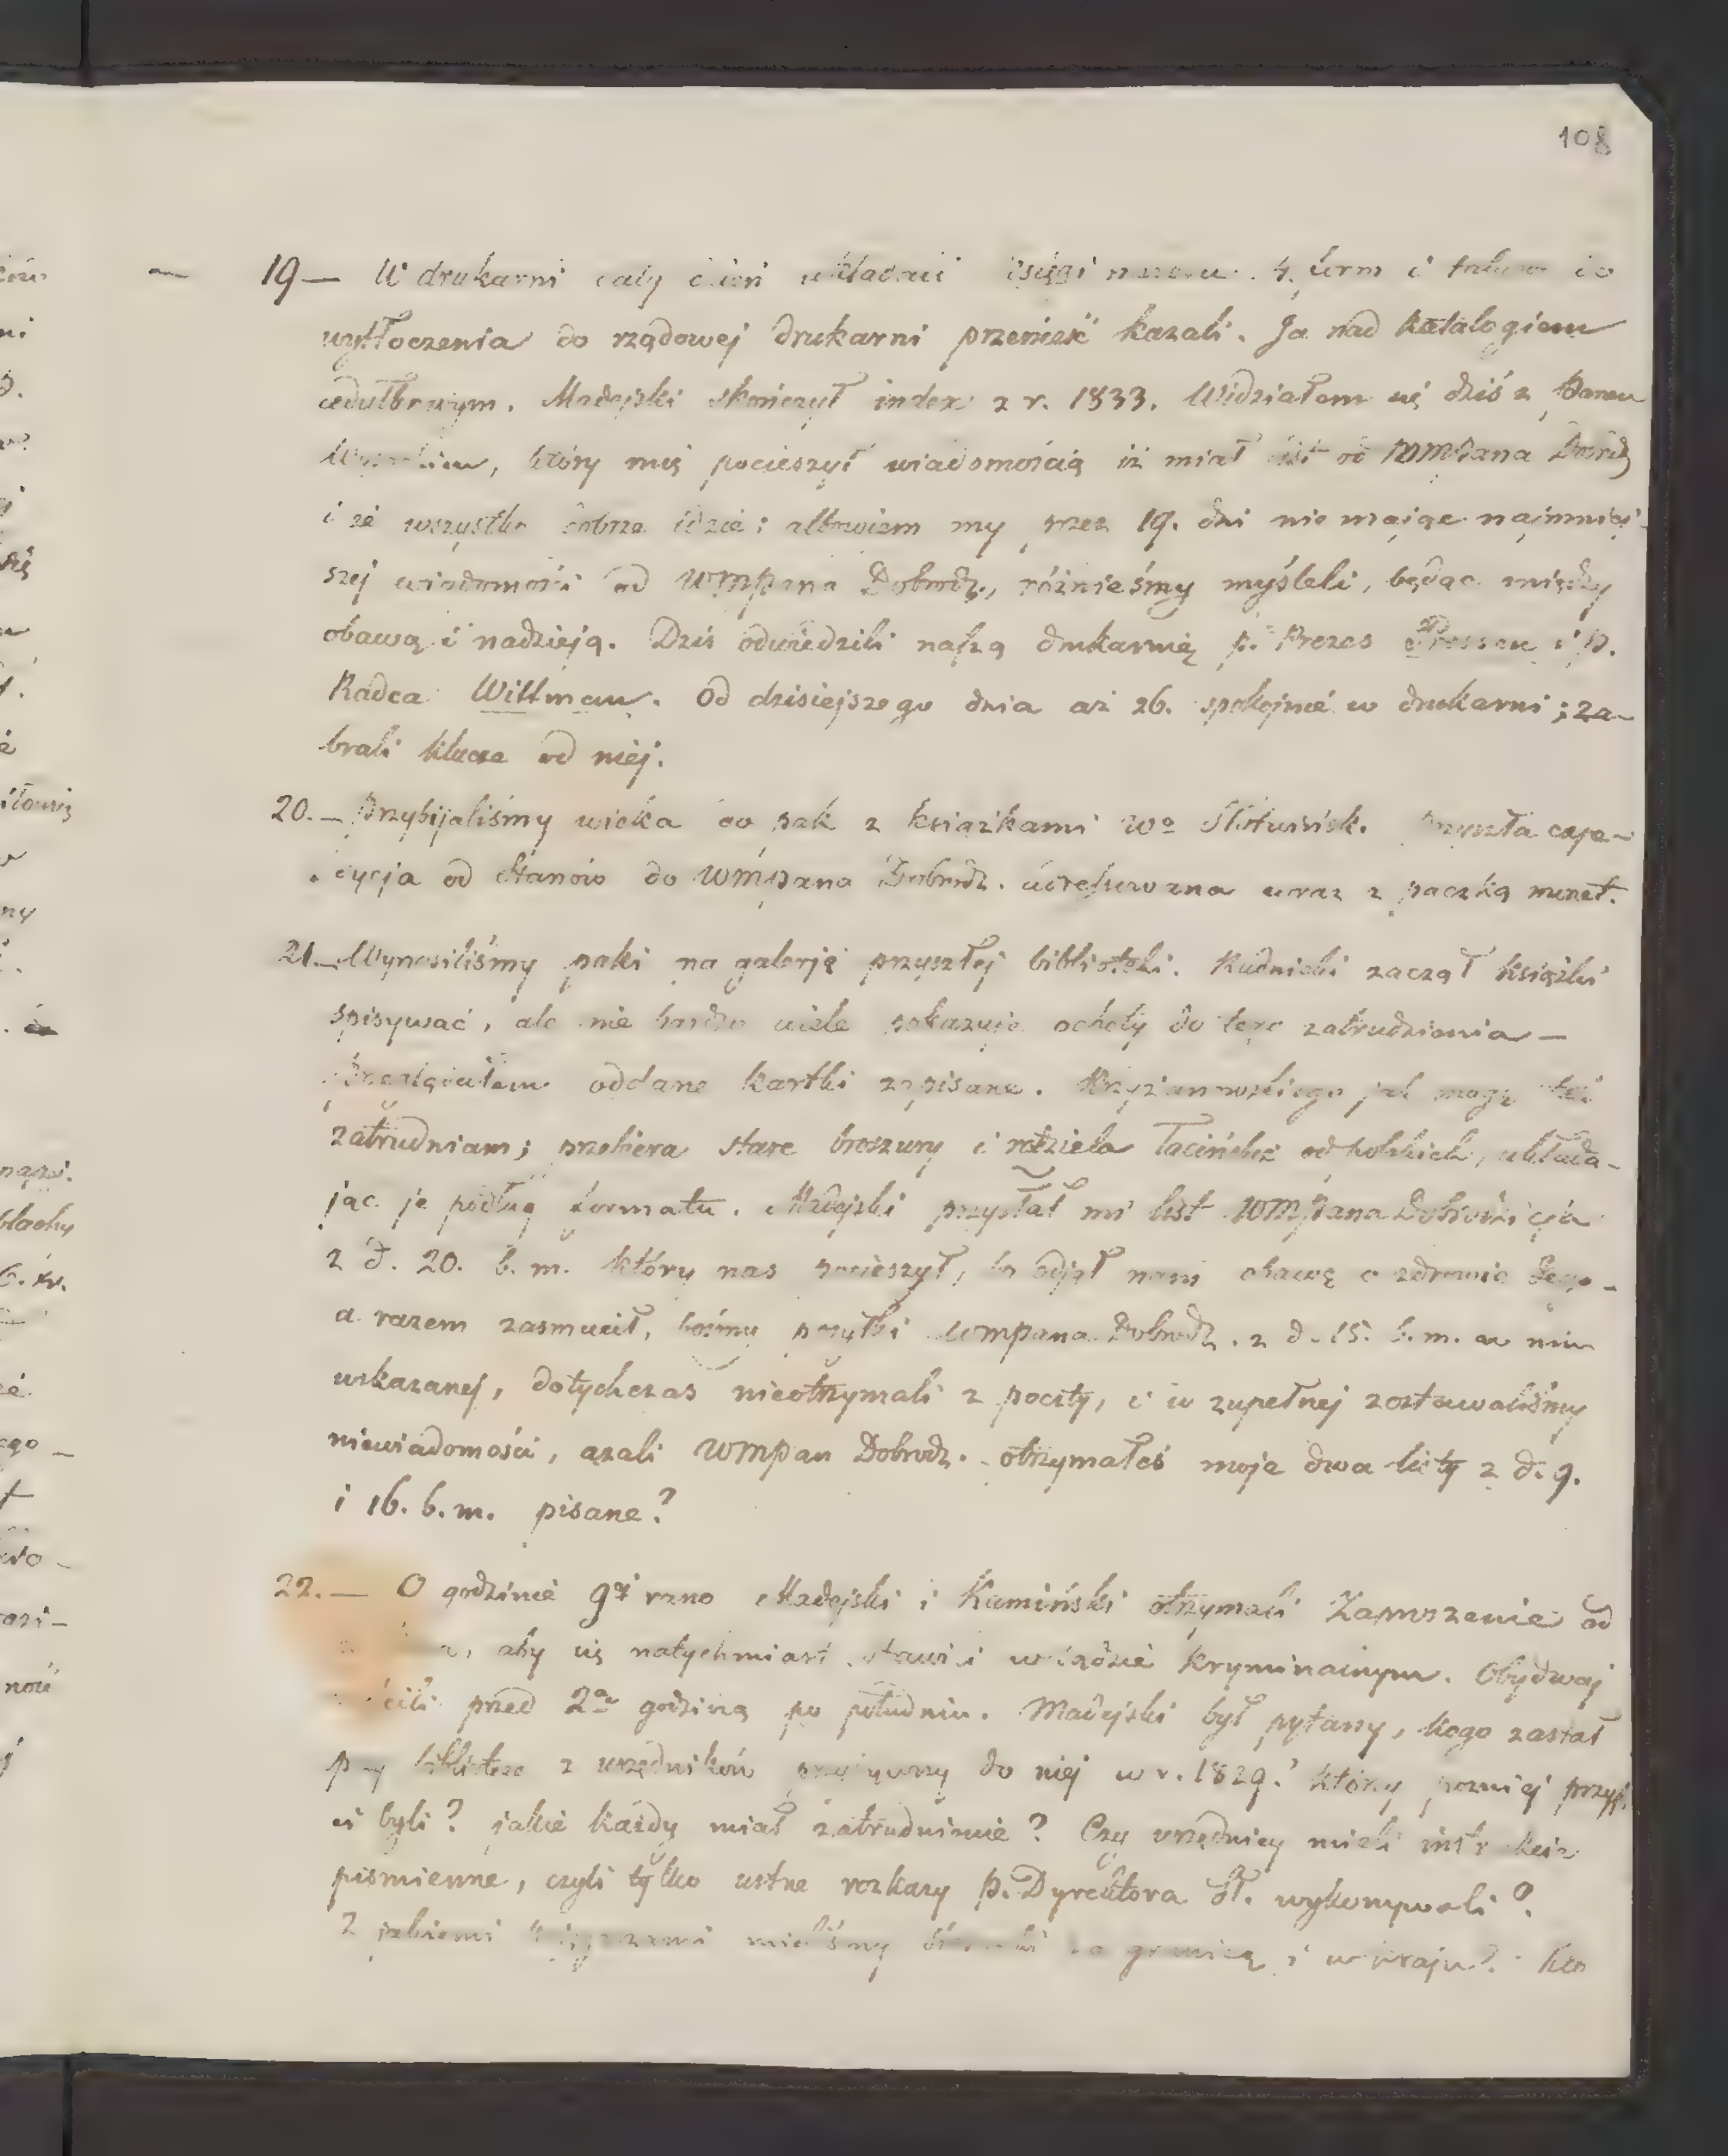 108
— 19 — W drukarni cały dzień układali 4. form i
wytłoczenia do rządowej drukarni przenieść kazali. Ja nad katalogiem
cedułkowym. Madejski skończył index z r. 1833. Widziałem się dziś z Panem
który mię pocieszył wiadomością iż miał list od WMPana Dobrdz
i że wszystko dobrze idzie; albowiem my przez 19. dni nie mając najmniej-
szej wiadomości od WMPana Dobrodz., różnieśmy myśleli, będąc między
obawą i nadzieją. Dziś odwiedzili naszą drukarnię p. Prezes Pressen i P.
Radca Wittman. Od dzisiejszego dnia aż 26. spokojnie w drukarni; za-
brali klucze od niej.
20. — Przybijaliśmy wieka do pak z książkami Wo Słotwińsk. Przyszła expe-
dycja od Stanów do WMPana Dobrodz. adresowana wraz z paczką monet.
21 — Wynosiliśmy paki na galerję przyszłej biblioteki. Rudnicki zaczął książki
spisywać, ale nie bardzo wiele pokazuje ochoty do tego zatrudnienia —
oddane kartki zapisane. Krzyżanowskiego jak mogę
zatrudniam; przebiera stare broszury i dzieła łacińskie od polskich, układa-
jąc je podług formatu. Madejski przysłał mi list WMPana Dobrodzieja
z d. 20. b. m. który nas pocieszył, bo odjął nam obawę o zdrowie Jego —
a razem zasmucił, bośmy posyłki WMPana Dobrodz. z d. 15. b. m. w nim
wskazanej, dotychczas nieotrzymali z poczty, i w zupełnej zostawaliśmy
niewiadomości, azali WMPan Dobrodz. otrzymałeś moje dwa listy z d. 9.
i 16. b. m. pisane?
22. — O godzinie 9tej rano Madejski i Kamiński otrzymali Zaproszenie od
aby się natychmiast stawili w sądzie kryminalnym. Obydwaj
przed 2gą godziną po południu. Madejski był pytany, kogo zastał
przy bibliotece z urzędników przybywszy do niej w r. 1829? którzy pozniej przyj.
ci byli? jakie każdy miał zatrudnienie? Czy urzędnicy mieli instrukcje
piśmienne, czyli tylko ustne rozkazy p. Dyrektora Sł. wykonywali?
Z jakiemi mieliśmy za granicą i w kraju? Kto